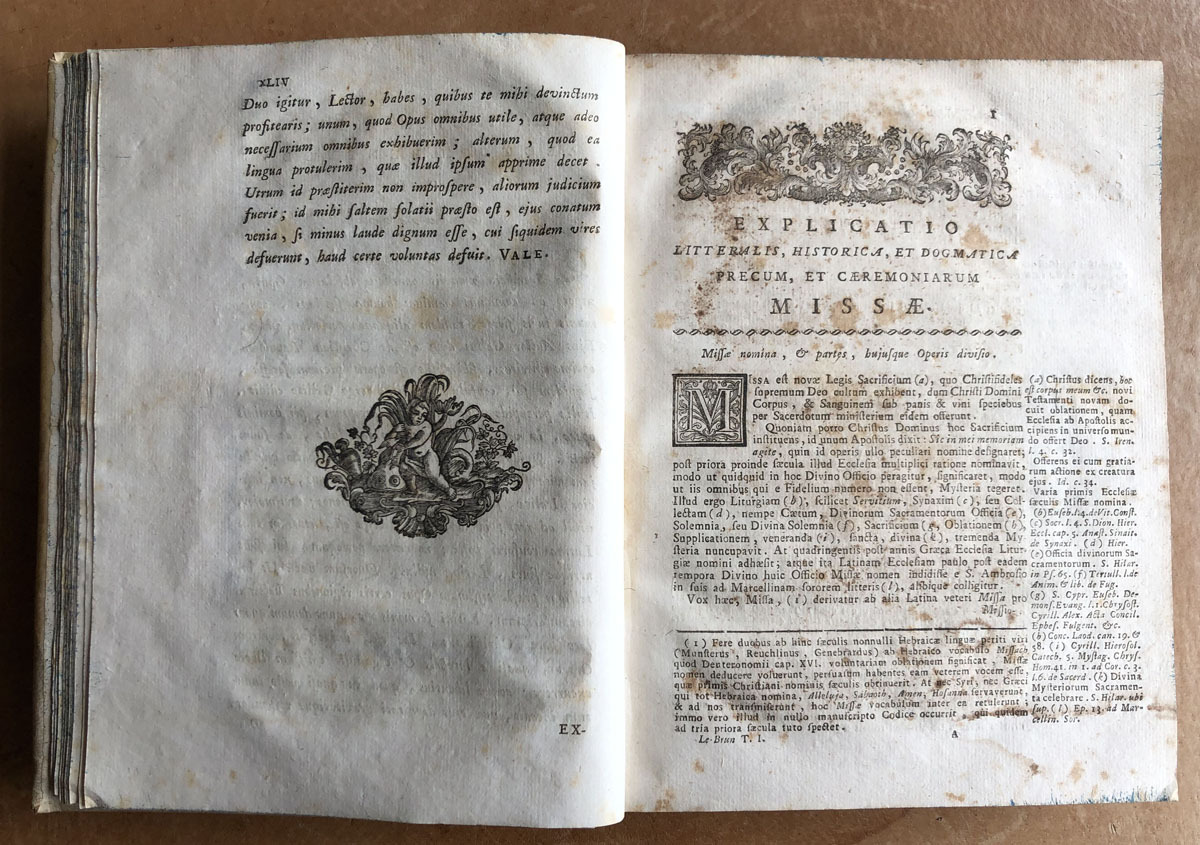 XLIV
Duo igitur, Lector, habes, quibus te mihi devinctum
profitearis; unum, quod Opus omnibus utile, atque adeo
necessarium omnibus exhibuerim; alterum, quod ea
lingua protulerim, quæ illud ipsum apprime decet.
Utrum id præstiterim non improspere, aliorum judicium
fuerit; id mihi saltem solatii præsto est, ejus conatum
venia, si minus laude dignum esse, cui siquidem vires
defuerunt, haud certe voluntas defuit. VALE.
EX-
I
EXPLICATIO
LITTERALIS, HISTORICA, ET DOGMATICA
PRECUM, ET CÆREMONIARUM
MISSÆ.
Missæ nomina, & partes, hujusque Operis divisio.
MISSA est novæ Legis Sacrificium (a), quo Christifideles
sopremum Deo cultum exhibent, dum Christi Domini
Corpus, & Sanguinem sub panis & vini speciebus
per Sacerdotum ministerium eidem offerunt.
Quoniam porro Christus Dominus hoc Sacrificium
instituens, id unum Apostolis dixit: Hæc in mei memoriam
agite, quin id operis ullo peculiari nomine designaret;
post priora proinde sæcula illud Ecclesia multiplici ratione nominavit,
modo ut quidquid in hoc Divino Officio peragitur, significaret, modo
ut iis omnibus qui e Fidelium numero non essent, Mysteria tegeret.
Illud ergo Liturgiam (b), scilicet Servitium, Synaxim (c), seu Col-
lectam (d), nempe Cætum, Divinorum Sacramentorum Officia (e),
Solemnia, seu Divina Solemnia (f), Sacrificium (g, Oblationem (h)
Supplicationem, veneranda (i), sancta, divina (k), tremenda My
steria nuncupavit. At quadringentis post annis Græca Ecclesia Litur-
giæ nomini adhæsit; atque ita Latinam Ecclesiam paulo post eadem
tempora Divino huic Officio Missæ nomen indidisse e S. Ambrosio
in suis ad Marcellinam sororem litteris (l), aliisque colligitur.
Vox hæc, Missa, (1) derivatur ab alia Latina veteri Missa pro
Missio-
(a) Christus dicens, hoc
est corpus meum &c. novi
Testamenti novam do-
cuit oblationem, quam
Ecclesia ab Apostolis ac-
cipiens in universo mun-
do offert Deo. S. Iren.
l. 4. c. 32.
Offerens ei cum gratia-
rum actione ex creatura
ejus. Id. c. 34.
Varia primis Ecclesiæ
sæculis Missæ nomina.
(b) Euseb. l. 4. de Vit. Const.
(c) Socr. l. 5. S. Dion. Hier.
Eccl. cap. 3. Anast. Sinait.
de Synaxi. (d) Hier.
(e) Officia divinorum Sa-
cramentorum. S. Hilar.
in Ps. 65. (f) Tertull. l. de
Anim. & lib. de Fug.
(g) S. Cypr. Euseb. De-
mons. Evang. l. 1. Chrysost.
Cyrill. Alex. Acta Concil.
Ephes. Fulgent. &c.
(h) Conc. Laod. can. 19. &
58. (i) Cyrill. Hierosol.
Catech. 5. Mystag. Chrys.
Hom. 41. in 1. ad Cor. c. 3.
l. 6. de Sacerd. (k) Divina
Mysteriorum Sacramen-
ta celebrare. S. Hilar. ubi
sup. (l) Ep. 13. ad Mar-
cellin. Sor.
(1) Fere duobus ab hinc sæculis nonnulli Hebraicæ linguæ periti viri
(Munsterus, Reuchlinus, Genebrardus) ab Hebraico vocabulo Missach
quod Deuteronomii cap. XVI. voluntariam oblationem significat, Missæ
nomen deducere voluerunt, persuasum habentes eam veterem vocem esse,
quæ primis Christiani nominis sæculis obtinuerit. At nec Syri, nec Græci
qui tot Hebraica nomina, Alleluja, Sabaoth, Amen, Hosanna servaverunt,
& ad nos transmiserunt, hoc Missæ vocabulum inter ea retulerunt;
immo vero illud in nullo manuscripto Codice occurrit, qui quidem
ad tria priora sæcula tuto spectet.
Le-Brun T. I.
A